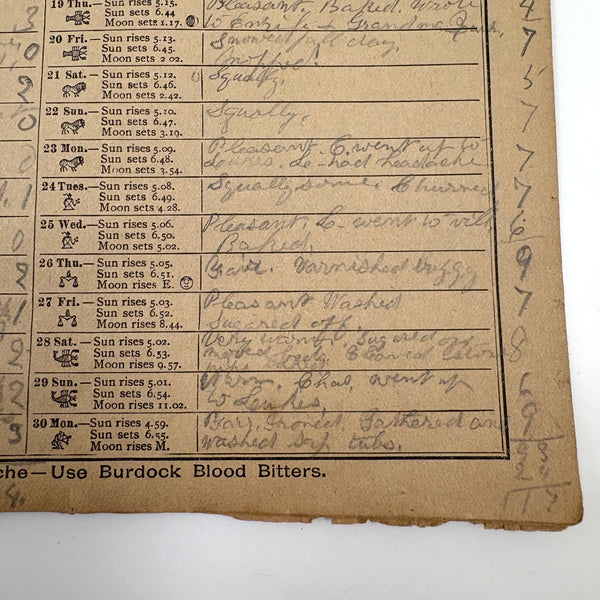 19 Thu.—Sun rises 5.15. Pleasant. Baked. Wrote
Sun sets 6.44 to
Moon sets 1.17. Grandma
20 Fri.—Sun rises 5.13. Snowed all day.
Sun sets 6.45.
Moon sets 2 02. Mopped.
21 Sat.—Sun rises 5.12. Squally.
Sun sets 6.46.
Moon sets 2.42.
22 Sun.—Sun rises 5.10. Squally.
Sun sets 6.47.
Moon sets 3.19.
23 Mon.—Sun rises 5.09. Pleasant. C. went up to
Sun sets 6.48. Le had headache
Moon sets 3.54.
24 Tues.—Sun rises 5.08. Squally some. Churned
Sun sets 6.49.
Moon sets 4 28.
25 Wed.—Sun rises 5.06. Pleasant. L. went to vill
Sun sets 6.50. Baked.
Moon sets 5.02.
26 Thu.—Sun rises 5.05. Fair. Varnished buggy
Sun sets 6.51.
Moon rises E.
27 Fri.—Sun rises 5.03. Pleasant Washed
Sun sets 6.52. Sugared off.
Moon rises 8.44.
28 Sat.—Sun rises 5.02. Very warm. Sugared off
Sun sets 6.53. Moved
Moon rises 9.57.
29 Sun.—Sun rises 5.01. Warm. Chas. went up
Sun sets 6.54. to
Moon rises 11.02.
30 Mon.—Sun rises 4.59. Ironed. Gathered and
Sun sets 6.55. washed sap tubs.
Moon rises M.
che—Use Burdock Blood Bitters.